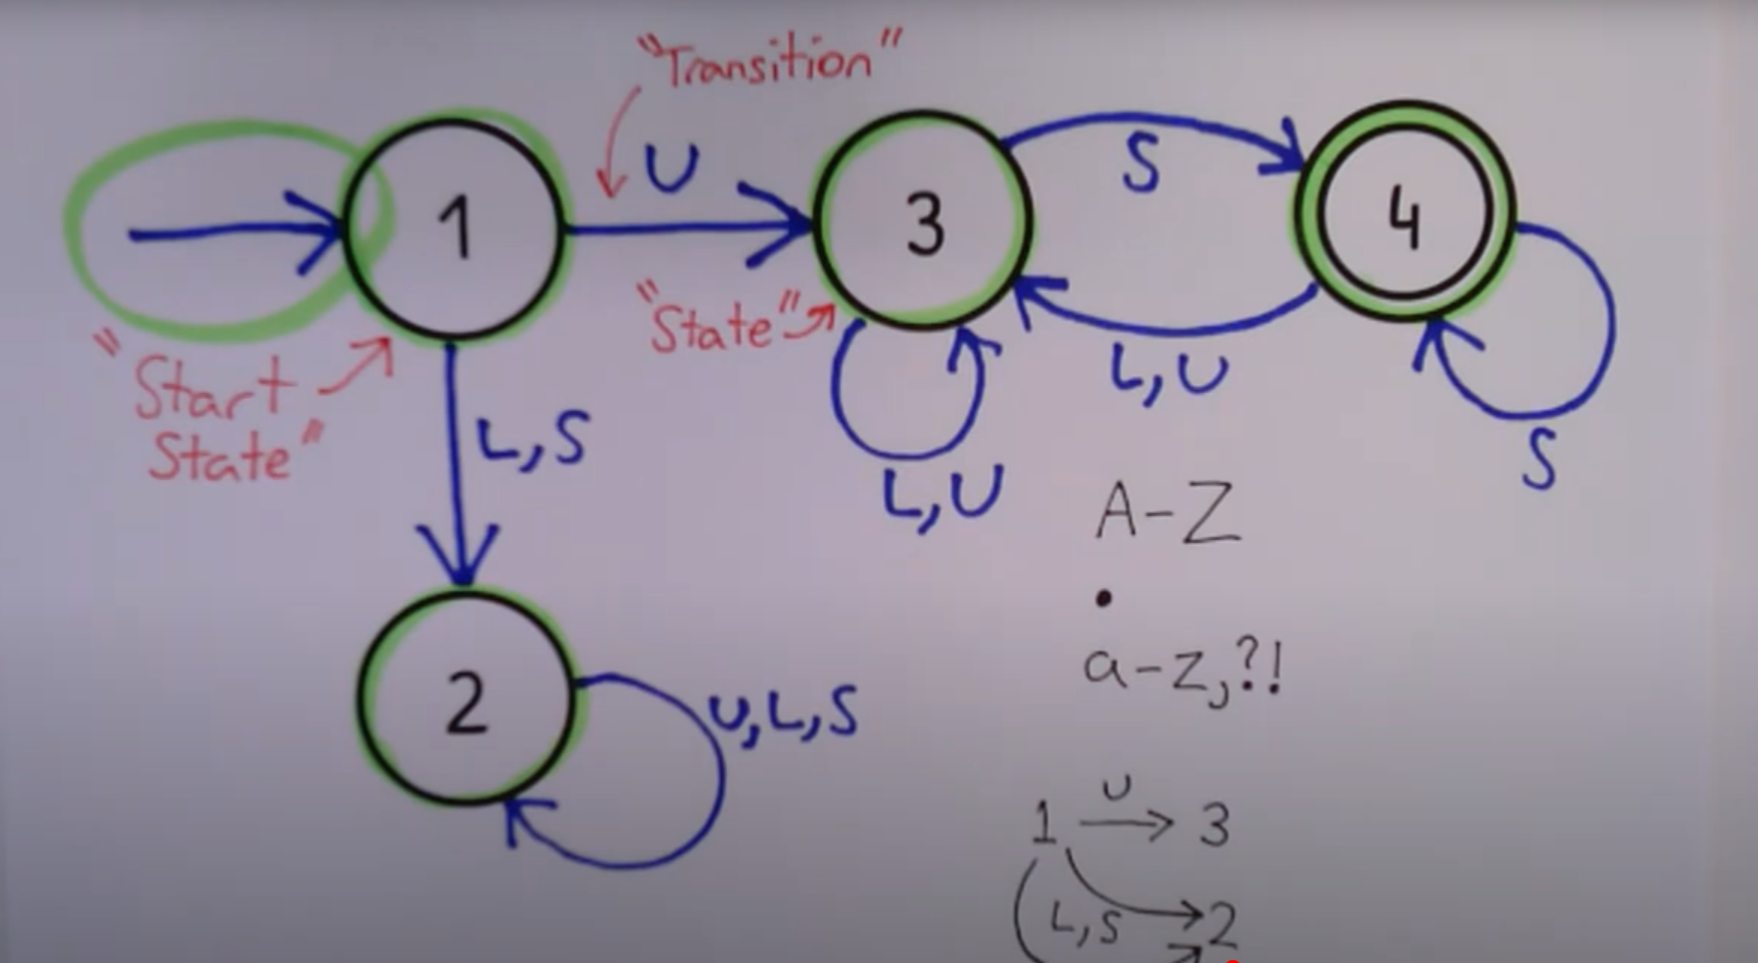 "Transition"
U
S
1
3
4
"State"
L,U
"Start
State"
L,S
S
L,U
A-Z
.
a-z,?!
2
U,L,S
U
1 → 3
L,S → 2